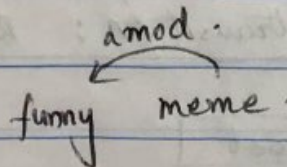 amod.
funny meme.